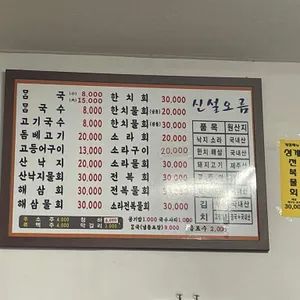 몸 국 (소) 8,000
(대) 15,000
국 수 8,000
고기국수 8,000
돔베고기 20,000
고등어구이 13,000
산 낙 지 20,000
산낙지물회 30,000
해 삼 회 30,000
해삼물회 30,000
한 치 회 30,000
한치물회 20,000
한치물회 30,000
소 라 회 20,000
소라구이 20,000
전 복 회 30,000
전복물회 30,000
소라전복물회 30,000
신설오름
품 목 원산지
낙지 소라 국내산
한치 해삼 국내산
돼지고기 제주산
국내산
김치
소 주 4,000
맥 주 4,000
막걸리 3,000
공기밥 1,000 국수사리 1,000
몸국(냉동포장) 9,000
성게
전복물회
30,000